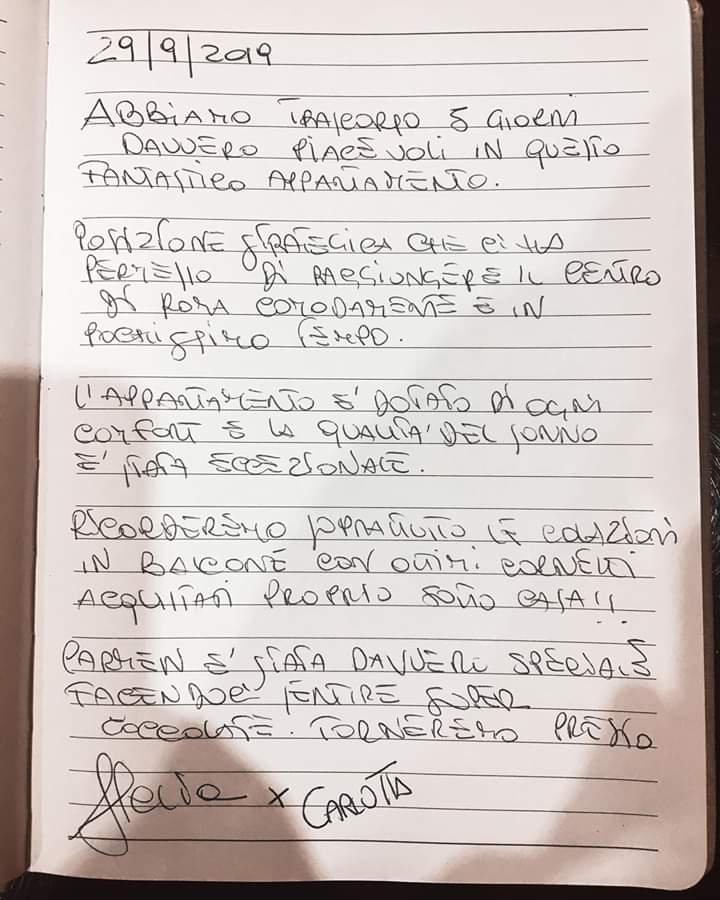 29/9/2019
ABBIAMO TRASCORSO 5 GIORNI
DAVVERO PIACEVOLI IN QUESTO
FANTASTICO APPARTAMENTO.
POSIZIONE STRATEGICA CHE CI HA
PERMESSO DI RAGGIUNGERE IL CENTRO
DI ROMA COMODAMENTE E IN
POCHISSIMO TEMPO.
L'APPARTAMENTO E' DOTATO DI OGNI
COMFORT E LA QUALITA' DEL SONNO
E' STATA ECCEZIONALE.
RICORDEREMO SOPRATTUTTO LE COLAZIONI
IN BALCONE CON OTTIMI CORNETTI
ACQUISTATI PROPRIO SOTTO CASA!!
CARMEN E' STATA DAVVERO SPECIALE
SENTIRE SUPER
COCCOLATE. TORNEREMO PRESTO
x CARLOTTA